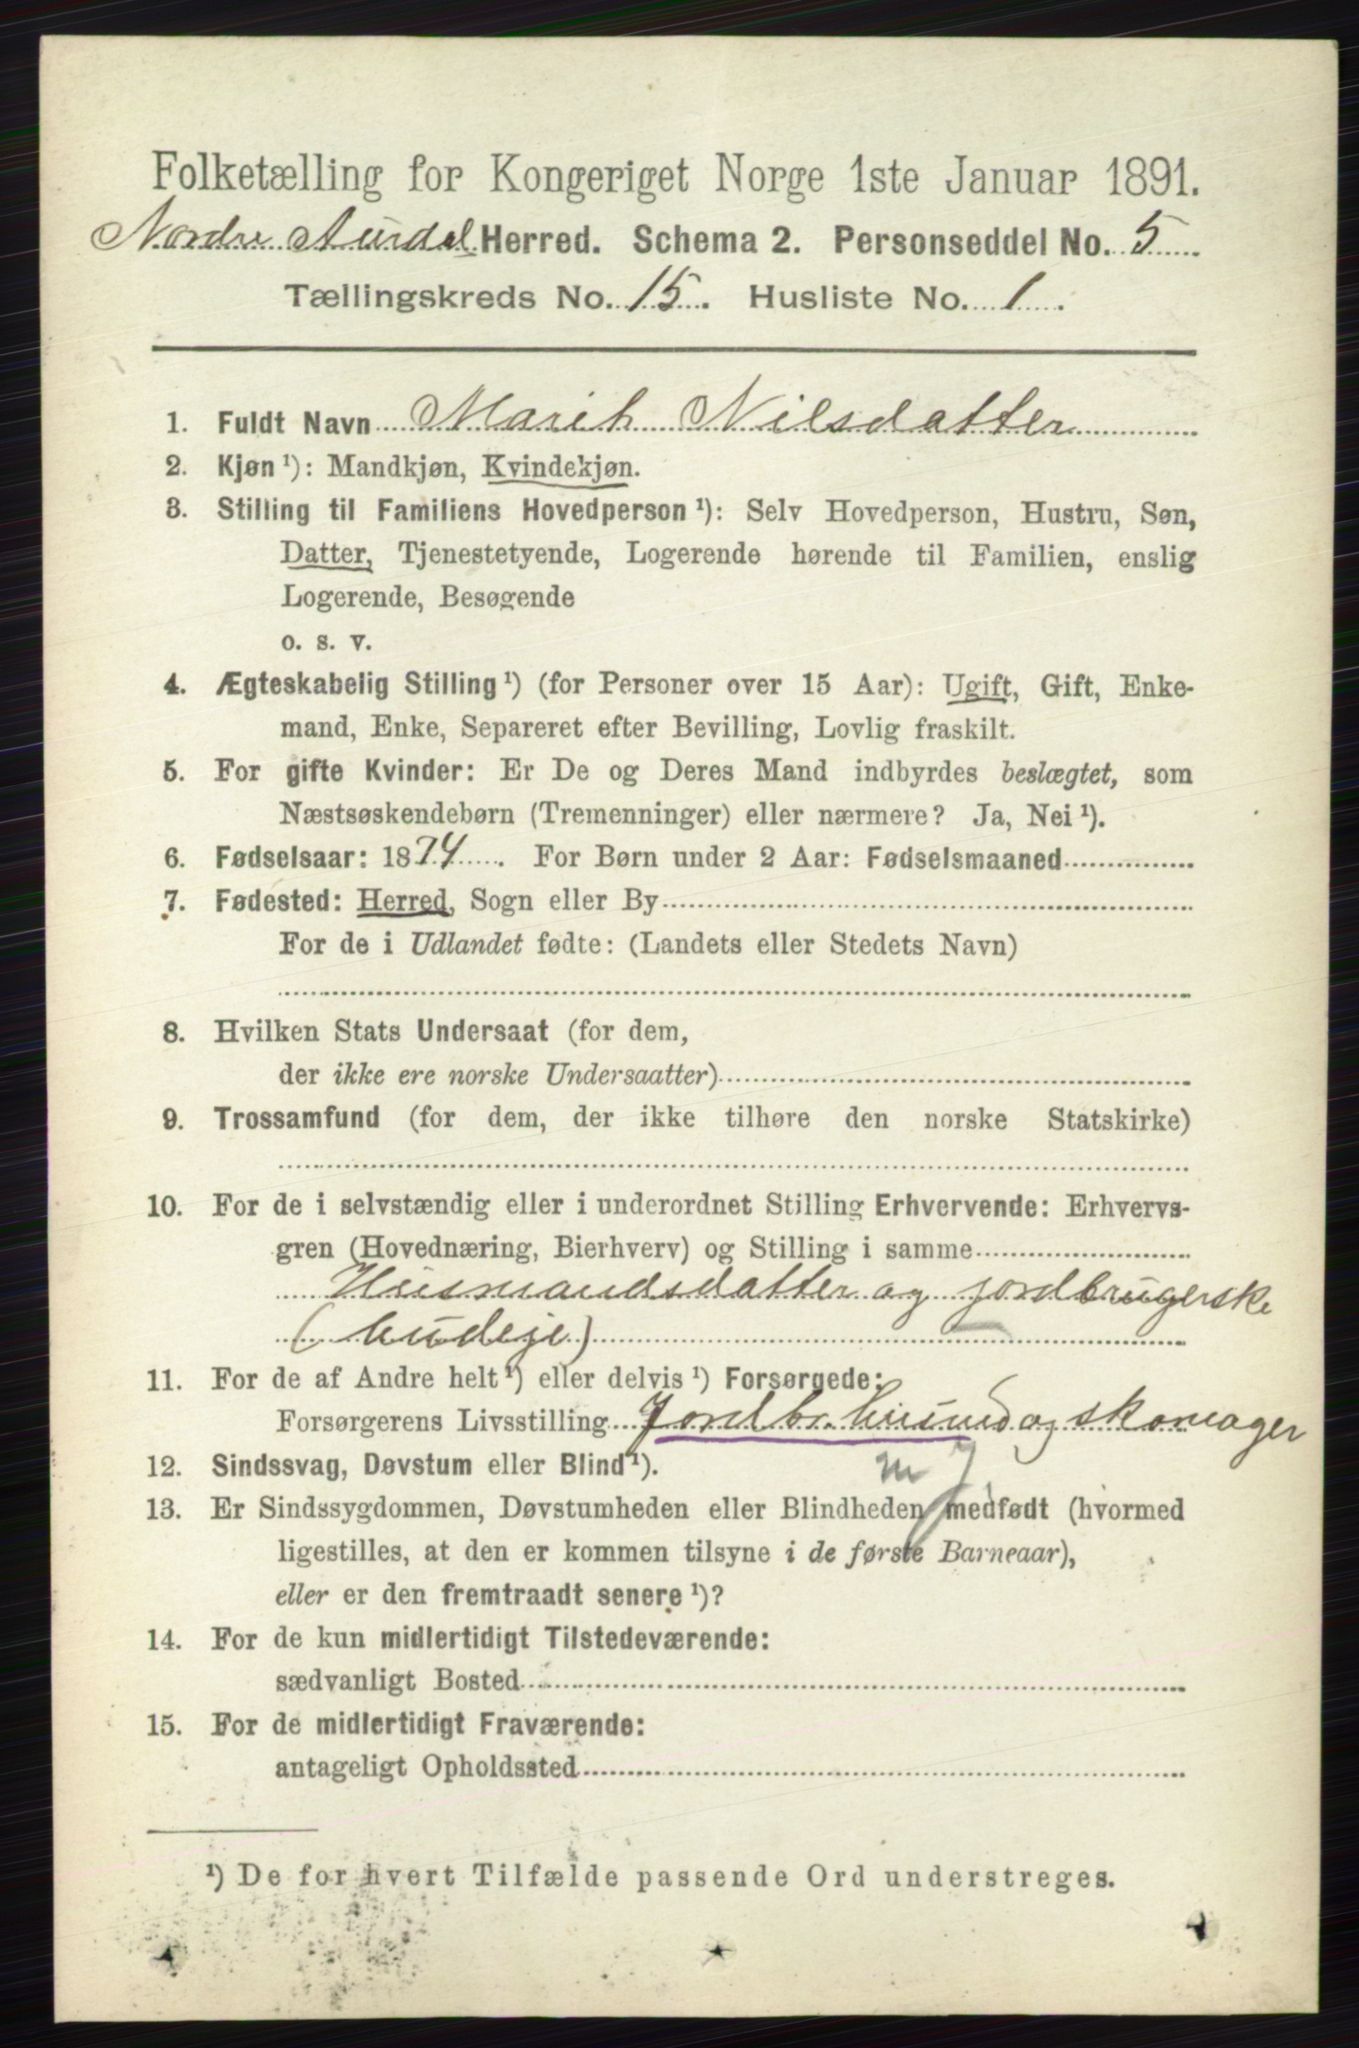 Folketælling for Kongeriget Norge 1ste Januar 1891.
Nordre Aurdal Herred. Schema 2. Personseddel No. 5
Tællingskreds No. 15. Husliste No. 1.
1. Fuldt Navn Marih Nilsdatter
2. Kjøn ¹): Mandkjøn, Kvindekjøn.
3. Stilling til Familiens Hovedperson ¹): Selv Hovedperson, Hustru, Søn,
Datter, Tjenestetyende, Logerende hørende til Familien, enslig
Logerende, Besøgende
o. s. v.
4. Ægteskabelig Stilling ¹) (for Personer over 15 Aar): Ugift, Gift, Enke-
mand, Enke, Separeret efter Bevilling, Lovlig fraskilt.
5. For gifte Kvinder: Er De og Deres Mand indbyrdes beslægtet, som
Næstsøskendebørn (Tremenninger) eller nærmere? Ja, Nei ¹).
6. Fødselsaar: 1874. For Børn under 2 Aar: Fødselsmaaned
7. Fødested: Herred, Sogn eller By
For de i Udlandet fødte: (Landets eller Stedets Navn)
8. Hvilken Stats Undersaat (for dem,
der ikke ere norske Undersaatter)
9. Trossamfund (for dem, der ikke tilhøre den norske Statskirke)
10. For de i selvstændig eller i underordnet Stilling Erhvervende: Erhvervs-
gren (Hovednæring, Bierhverv) og Stilling i samme
Husmandsdatter og jordbrugerske
(budeje)
11. For de af Andre helt ¹) eller delvis ¹) Forsørgede:
Forsørgerens Livsstilling Jordbr. husmd og skomager
12. Sindssvag, Døvstum eller Blind ¹).
13. Er Sindssygdommen, Døvstumheden eller Blindheden medfødt (hvormed
ligestilles, at den er kommen tilsyne i de første Barneaar),
eller er den fremtraadt senere ¹)?
14. For de kun midlertidigt Tilstedeværende:
sædvanligt Bosted
15. For de midlertidigt Fraværende:
antageligt Opholdssted
¹) De for hvert Tilfælde passende Ord understreges.